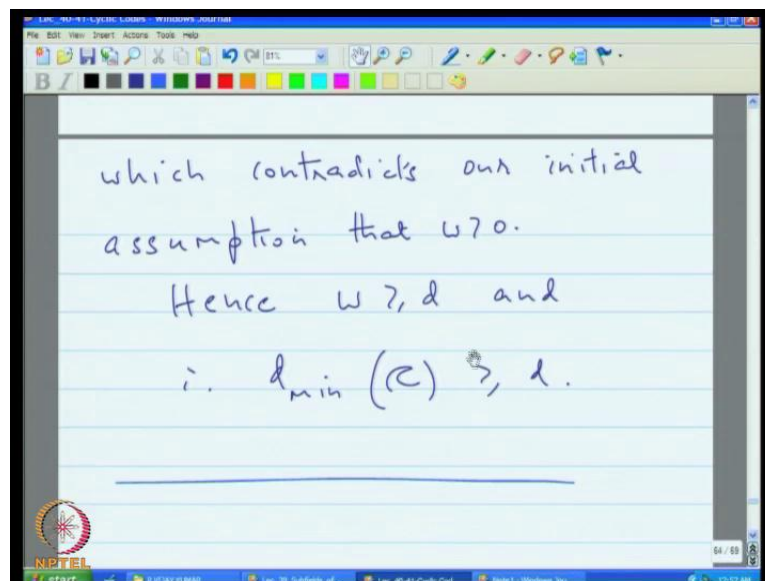 Lec_40-41-Cyclic Codes - Windows Journal
File Edit View Insert Actions Tools Help
81%
B I
which contradicts our initial
assumption that w>0.
Hence w ≥ d and
∴ d_min (C) ≥ d.
64 / 69
NPTEL
start
Lec_40-41-Cyclic Cod...
12:57 AM